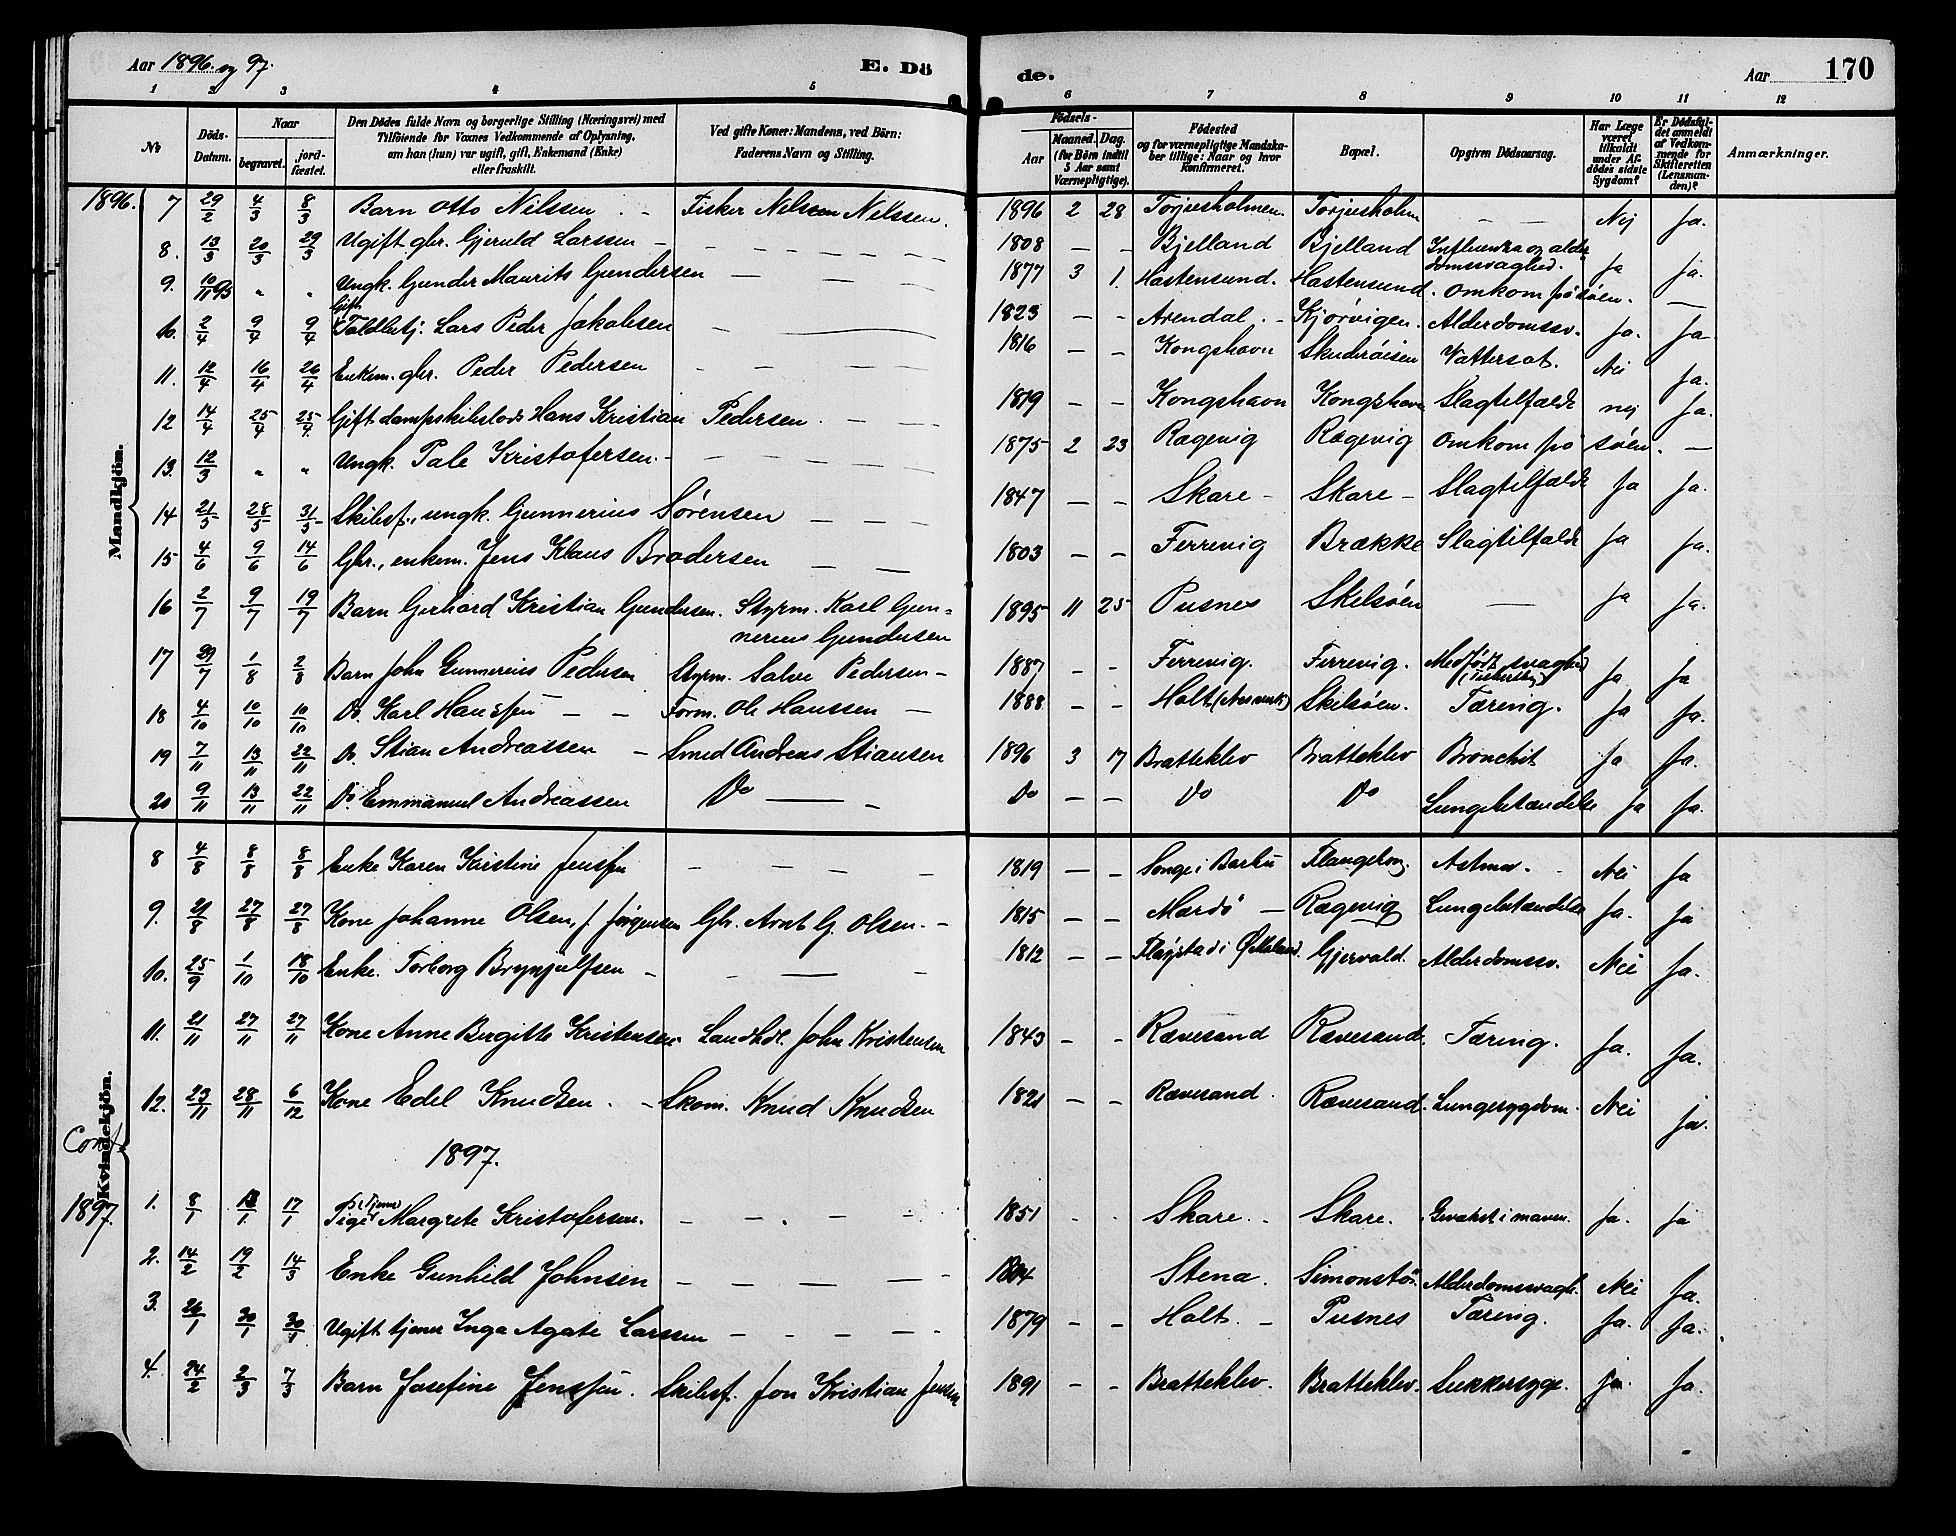 Aar 1896. og 97.
E. Dö
de.
Aar
170
1 2 3 4 5 6 7 8 9 10 11 12
No
Döds-Datum.
Naar
begravet.
jord-fæstet.
Den Dødes fulde Navn og borgerlige Stilling (Næringsvei) med
Tilføiende for Voxnes Vedkommende af Oplysning,
om han (hun) var ugift, gift, Enkemand (Enke)
eller fraskilt.
Ved gifte Koner: Mandens, ved Börn:
Faderens Navn og Stilling.
Födsels-
Aar
Maaned. Dag.
(for Börn indtil
5 Aar samt
Værnepligtige).
Födested
og for værnepligtige Mandska-
ber tillige: Naar og hvor
Konfirmeret.
Bopæl.
Opgiven Dödsaarsag.
Har Læge
været
tilkaldt
under Af-
dödes sidste
Sygdom?
Er Dödsfal-
det anmeldt
af Vedkom-
mende for
Skifteretten
(Lensman-
den)?
Anmærkninger.
Mandkjön.
1896. 7 29/2 4/3 8/3 Barn Otto Nilssen. - Fisker Nilsen Nilssen. 1896 2 28 Torjusholmen. Torjusholm - - Nej Ja.
8. 13/3 20/3 29/3 Ugift gbr. Gjeruld Larssen - - - - - 1808 - - Bjelland Bjelland Influendsa og alder
domssvaghed. Ja Ja.
9. 10/11 95 " " Ungk. Gunder Maurits Gundersen - - 1877 3 1. Hastensund. Hastensund. omkom på söen. -
10. 2/4 9/4 9/4 Gift Toldbetj. Lars Peder Jakobsen - - 1823 - - Arendal. - Kjörvigen. Alderdomssv. Ja. Ja
11. 12/4 16/4 26/4 Enkem. gbr. Peder Pedersen - - - 1816 - - Kongshavn Skuderöisen Vattersot. Nei Ja.
12 14/4 25/4 25/4 Gift dampskibslods Hans Kristian Pedersen. - - 1819 - - Kongshavn Kongshavn Slagtilfælde nej Ja.
13. 12/3 " " Ungk. Tale Kristofersen. - - - - - 1875 2 23 Rægevig Rægevig omkom på söen. -
14 21/5 28/5 31/5 Skibsf., ungk. Gunnerius Sørensen - - - 1847 - - Skare - Skare - Slagtilfælde Ja Ja.
15 4/6 9/6 14/6 Gbr., enkem. Jens Klaus Brodersen - - 1803 - - Ferrevig Brække Slagtilfælde Ja Ja.
16 2/7 9/7 19/7 Barn Gerhard Kristian Gundersen. Styrm. Karl Gun-
nerius Gundersen 1895 11 25 Pusnes Skelsöen - Ja Ja.
17 29/7 1/8 2/8 Barn John Gunnerius Pedersen Styrm. Salve Pedersen - 1887 - - Ferrevig. Ferrevig. Medfødt svaghed Ja Ja
18 4/10 10/10 10/10 Do. Karl Hanssen - - Form. Ole Hanssen - 1888 - - Holt Skelsöen. Tæring. Ja Ja.
19 7/11 13/11 22/11 Do. Stian Andreassen - Smed Andreas Stiansen 1896 3 17 Bratteklev Bratteklev Bronchit Ja Ja.
20 9/11 13/11 22/11 Do. Emmanuel Andreassen Do - - Do - - Do Do Lungebetændelse Ja Ja.
Kvindekjön.
8 4/8 8/8 8/8 Enke Karen Kristine Jenssen - - - - - 1819 - - Songe i Barbu Astma. Nei Ja
9. 21/8 27/8 27/8 Kone Johanne Olsen, f. Jörgensen Gbr. Arnt G. Olsen. - 1815 - - Mærdö - Rægevig Lungebetændelse Ja. Ja
10. 25/9 1/10 18/10 Enke. Torborg Brynjulfsen - - - - 1812 - - Fløystad i Øiestad. Gjervold. Alderdomssv. Nei Ja.
11. 21/11 27/11 27/11 Kone Anne Birgitte Kristensen. Landhdl. John Kristensen 1843 - - Rævesand Rævesand. Tæring. Ja. Ja.
12. 23/11 28/11 6/12 Kone Edel Knudsen. - Skom. Knud Knudsen 1821 - - Rævesand. Rævesand. Lungesygdom. Nei Ja.
Conf.
1897.
1897. 1. 8/1 13/1. 17/1 Pige (Tjener) Margrete Kristofersen. - - . - - 1851 - - Skare. . Skare. Gevækst i maven. Ja. Ja
2. 14/2 19/2 14/3 Enke Gunhild Johnsen - - - - - 1804 Stena. Simonstö. Alderdomssvagh. Nei Ja.
3. 26/1 30/1 30/1 Ugift tjener Inga Agate Larssen - - - - - 1879 - - Holt. - Pusnes Tæring. Ja. Ja.
4. 24/2 2/3 7/3 Barn Josefine Jenssen. Skibsf. Jon Kristian Jensen 1891 - - Bratteklev. Bratteklev. Sukkersyge. Ja. Ja.